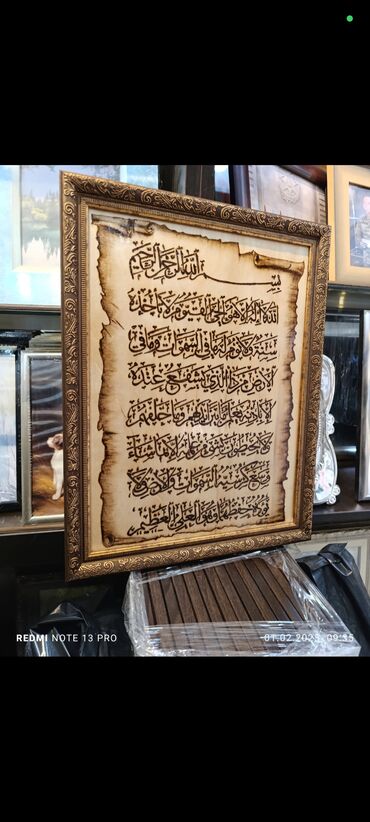 بسم الله الرحمن الرحيم
الله لا إله إلا هو الحي القيوم لا تأخذه
سنة ولا نوم له ما في السموات وما في
الأرض من ذا الذي يشفع عنده
إلا بإذنه يعلم ما بين أيديهم وما خلفهم
ولا يحيطون بشيء من علمه إلا بما شاء
وسع كرسيه السموات والأرض ولا
يؤده حفظهما وهو العلي العظيم
REDMI NOTE 13 PRO
01.02.2025 09:35